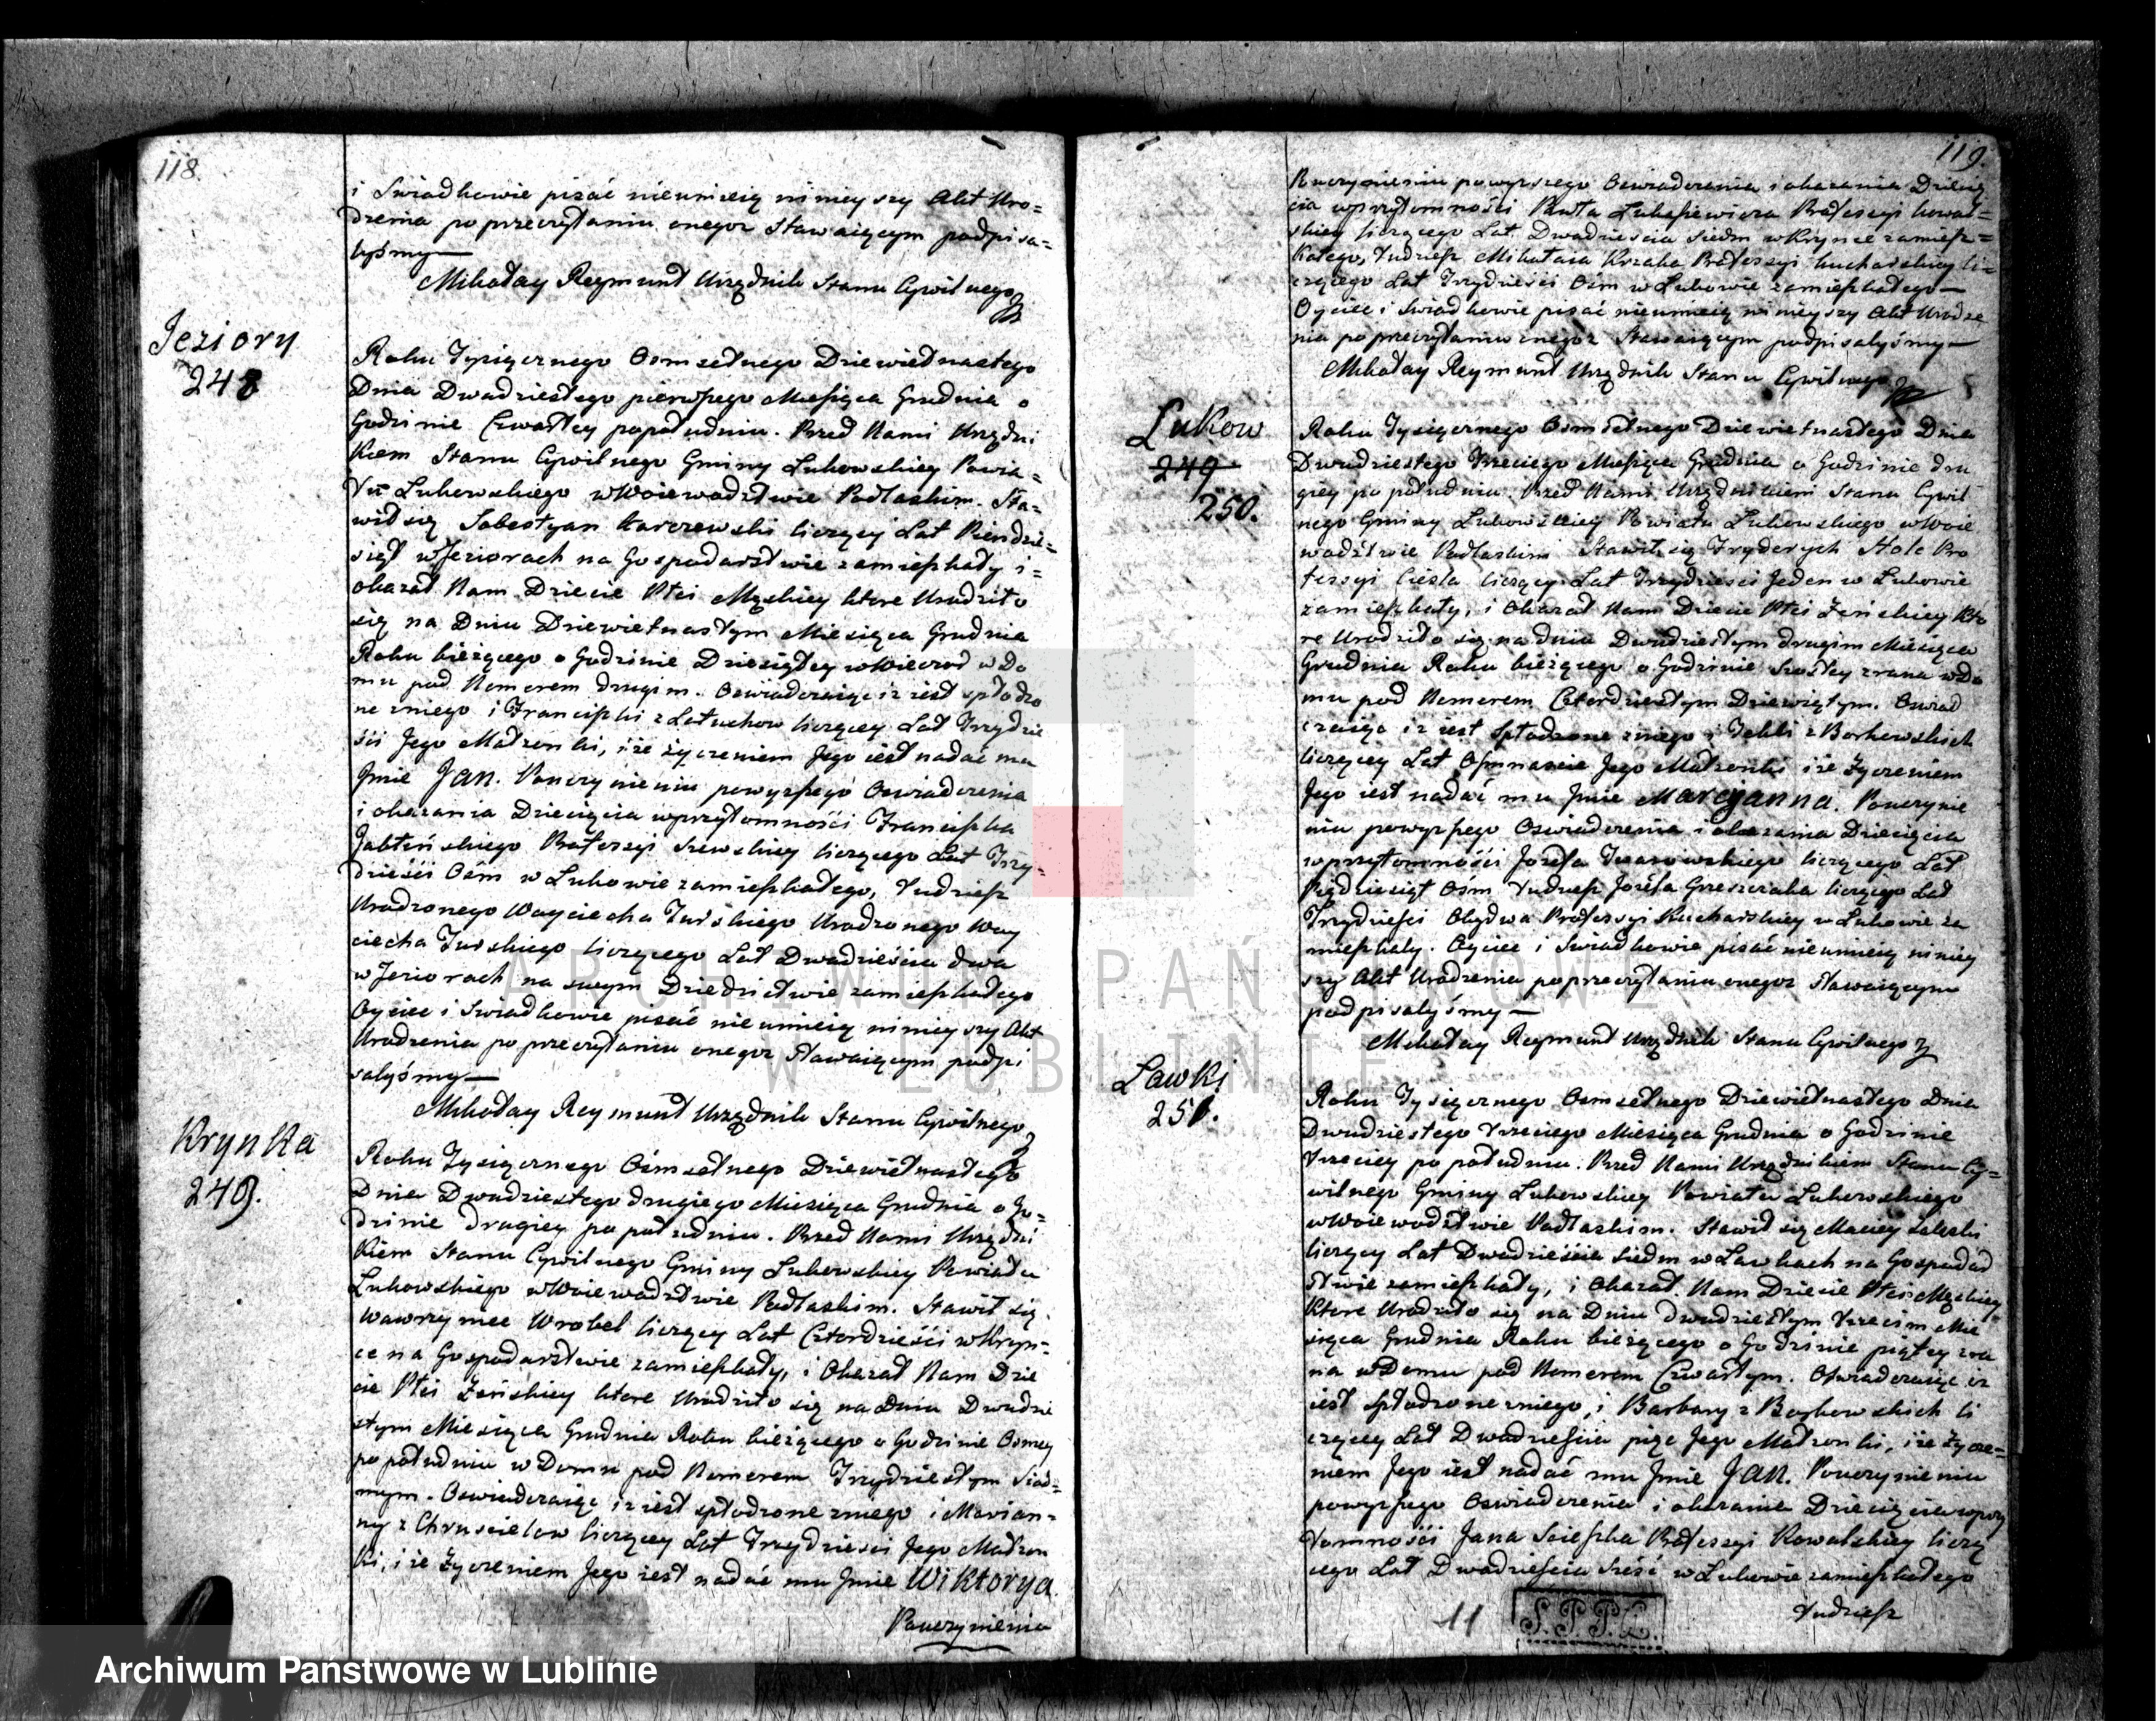 118.
i Swiadkowie pisać nieumieią ninieyszy Akt Uro=
dzenia po przeczytaniu onegoz Stawaiącym podpisa=
lyśmy—
Mikołay Reymund Urzędnik Stanu Cywilnego
Jeziory
248
Roku Tysiącznego Osmsetnego Dziewietnastego
Dnia Dwudziestego pierwszego Miesiąca Grudnia o
Godzinie Czwartey popołudniu. Przed Nami Urzędni
kiem Stanu Cywilnego Gminy Lukowskiey Powia=
tu Lukowskiego w Woiewodztwie Podlaskim. Sta=
wił się Sobestyan Karczewski liczący Lat
w Jeziorach na Gospodarstwie zamieszkały i=
okazał Nam Dziecie Płci Męskiey które Urodziło
się na Dniu Dziewietnastym Miesiąca Grudnia
Roku bieżącego o Godzinie Dziesiątey w Wieczor w Do
mu pod Numerem drugim. Oswiadczaiąc iz iest spłodzo
ne z niego i Franciszki z Latuchow liczącey Lat Trzydzie
ści Jego Małzonki, i że życzeniem Jego iest nadać mu
Jmie Jan. Po uczynieniu powyższego Oswiadczenia
i okazania Dziecięcia w przytomności Franciszka
Jabłońskiego Professyi Szewskiey liczącego Lat Trzy=
dzieści Ośm w Lukowie zamieszkałego, Tudziesz
Urodzonego Woyciecha Turskiego Urodzonego Woy
ciecha Turskiego liczącego Lat Dwadzieścia dwa
w Jeziorach na swym Dziedzictwie zamieszkałego
Oyciec i Swiadkowie pisać nieumieią ninieyszy Akt
Urodzenia po przeczytaniu onegoz Stawaiącym podpi
salyśmy—
Mikołay Reymund Urzędnik Stanu Cywilnego
Krynka
249.
Roku Tysiącznego Ośmsetnego Dziewietnastego
Dnia Dwudziestego drugiego Miesiąca Grudnia o Go=
dzinie drugiey po południu. Przed Nami Urzędni
kiem Stanu Cywilnego Gminy Lukowskiey Powiatu
Lukowskiego w Woiewodztwie Podlaskim. Stawił się
Wawrzyniec Wrobel liczący Lat Czterdzieści w Kryn=
ce na Gospodarstwie zamieszkały, i Okazał Nam Dzie
cie Płci Zeńskiey które Urodziło się na Dniu Dwudzie
stym Miesiąca Grudnia Roku bieżącego o Godzinie Osmey
po południu w Domu pod Numerem Trzydziestym Siod=
mym. Oswiadczaiąc iz iest spłodzone z niego i Marian=
ny z Chruscielow liczącey Lat Trzydziesci Jego Małzon
ki, i że życzeniem Jego iest nadać mu Jmie Wiktorya.
Po uczynieniu
119.
Po uczynieniu powyższego Oswiadczenia i okazania Dziecię
cia w przytomności Pawła Lukasiewicza Professyi kowal=
skiey liczącego Lat Dwadziescia Siedm w Krynce zamiesz=
kałego, Tudziesz Mikołaia Krzaka Professyi kucharskiey li=
czącego Lat Trzydzieści Ośm w Lukowie zamieszkałego—
Oyciec i Swiadkowie pisać nieumieią ninieyszy Akt Urodze
nia po przeczytaniu onegoz Stawaiącym podpisalyśmy—
Mikołay Reymund Urzędnik Stanu Cywilnego
Lukow
249
250.
Roku Tysiącznego Osmsetnego Dziewietnastego Dnia
Dwudziestego Trzeciego Miesiąca Grudnia o Godzinie dru
giey po południu. Przed Nami Urzędnikiem Stanu Cywil
nego Gminy Lukowskiey Powiatu Lukowskiego w Woie
wodztwie Podlaskim Stawił się Fryderych Stolc Pro
fessyi Ciesla liczący Lat Trzydziesci Jeden w Lukowie
zamieszkały, i Okazał Nam Dziecie Płci Zeńskiey Któ
re Urodziło się na dniu Dwudziestym drugim Miesiąca
Grudnia Roku bieżącego o Godzinie Szostey z rana w Do
mu pod Numerem Czterdziestym Dziewiątym. Oswiad
czaiąc iz iest Spłodzone z niego i Tekli z Borkowskich
liczącey Lat Osmnascie Jego Małzonki i że życzeniem
Jego iest nadać mu Jmie Marcyanna. Po uczynie
niu powyższego Oswiadczenia i okazania Dziecięcia
w przytomności Jozefa liczącego Lat
Piędziesiąt Ośm Tudziesz Jozefa Greszczaka liczącego Lat
Trzydziesci Obydwa Professyi Kucharskiey w Lukowie za
mieszkały. Oyciec i Swiadkowie pisać nieumieią niniey
szy Akt Urodzenia po przeczytaniu onegoz Stawaiącym
podpisalyśmy—
Mikołay Reymund Urzędnik Stanu Cywilnego
Lawki
251.
Roku Tysiącznego Osmsetnego Dziewietnastego Dnia
Dwudziestego Trzeciego Miesiąca Grudnia o Godzinie
Trzeciey po południu. Przed Nami Urzędnikiem Stanu Cy=
wilnego Gminy Lukowskiey Powiatu Lukowskiego
w Woiewodztwie Podlaskim. Stawił się Maciey Zaleski
liczący Lat Dwadzieścia Siedm w Lawkach na Gospodar
stwie zamieszkały, i Okazał Nam Dziecie Płci Męskiey
Które Urodziło się na Dniu dwudziestym Trzecim Mie
siąca Grudnia Roku bieżącego o Godzinie piątey z ra
na w Domu pod Numerem Czwartym. Oswiadczaiąc iz
iest Spłodzone z niego, i Barbary z Borkowskich li
czącey Lat Dwadziescia pięc Jego Małzonki, i że życze=
niem Jego iest nadać mu Jmie Jan. Po uczynieniu
powyższego Oswiadczenia i okazania Dziecięcia w przy
tomności Jana Professyi Kowalskiey liczą
cego Lat Dwadziescia Sześć w Lukowie zamieszkałego
Tudziesz
11
S.T.P.L.
ARCHIWUM PAŃSTWOWE
W LUBLINIE
Archiwum Państwowe w Lublinie